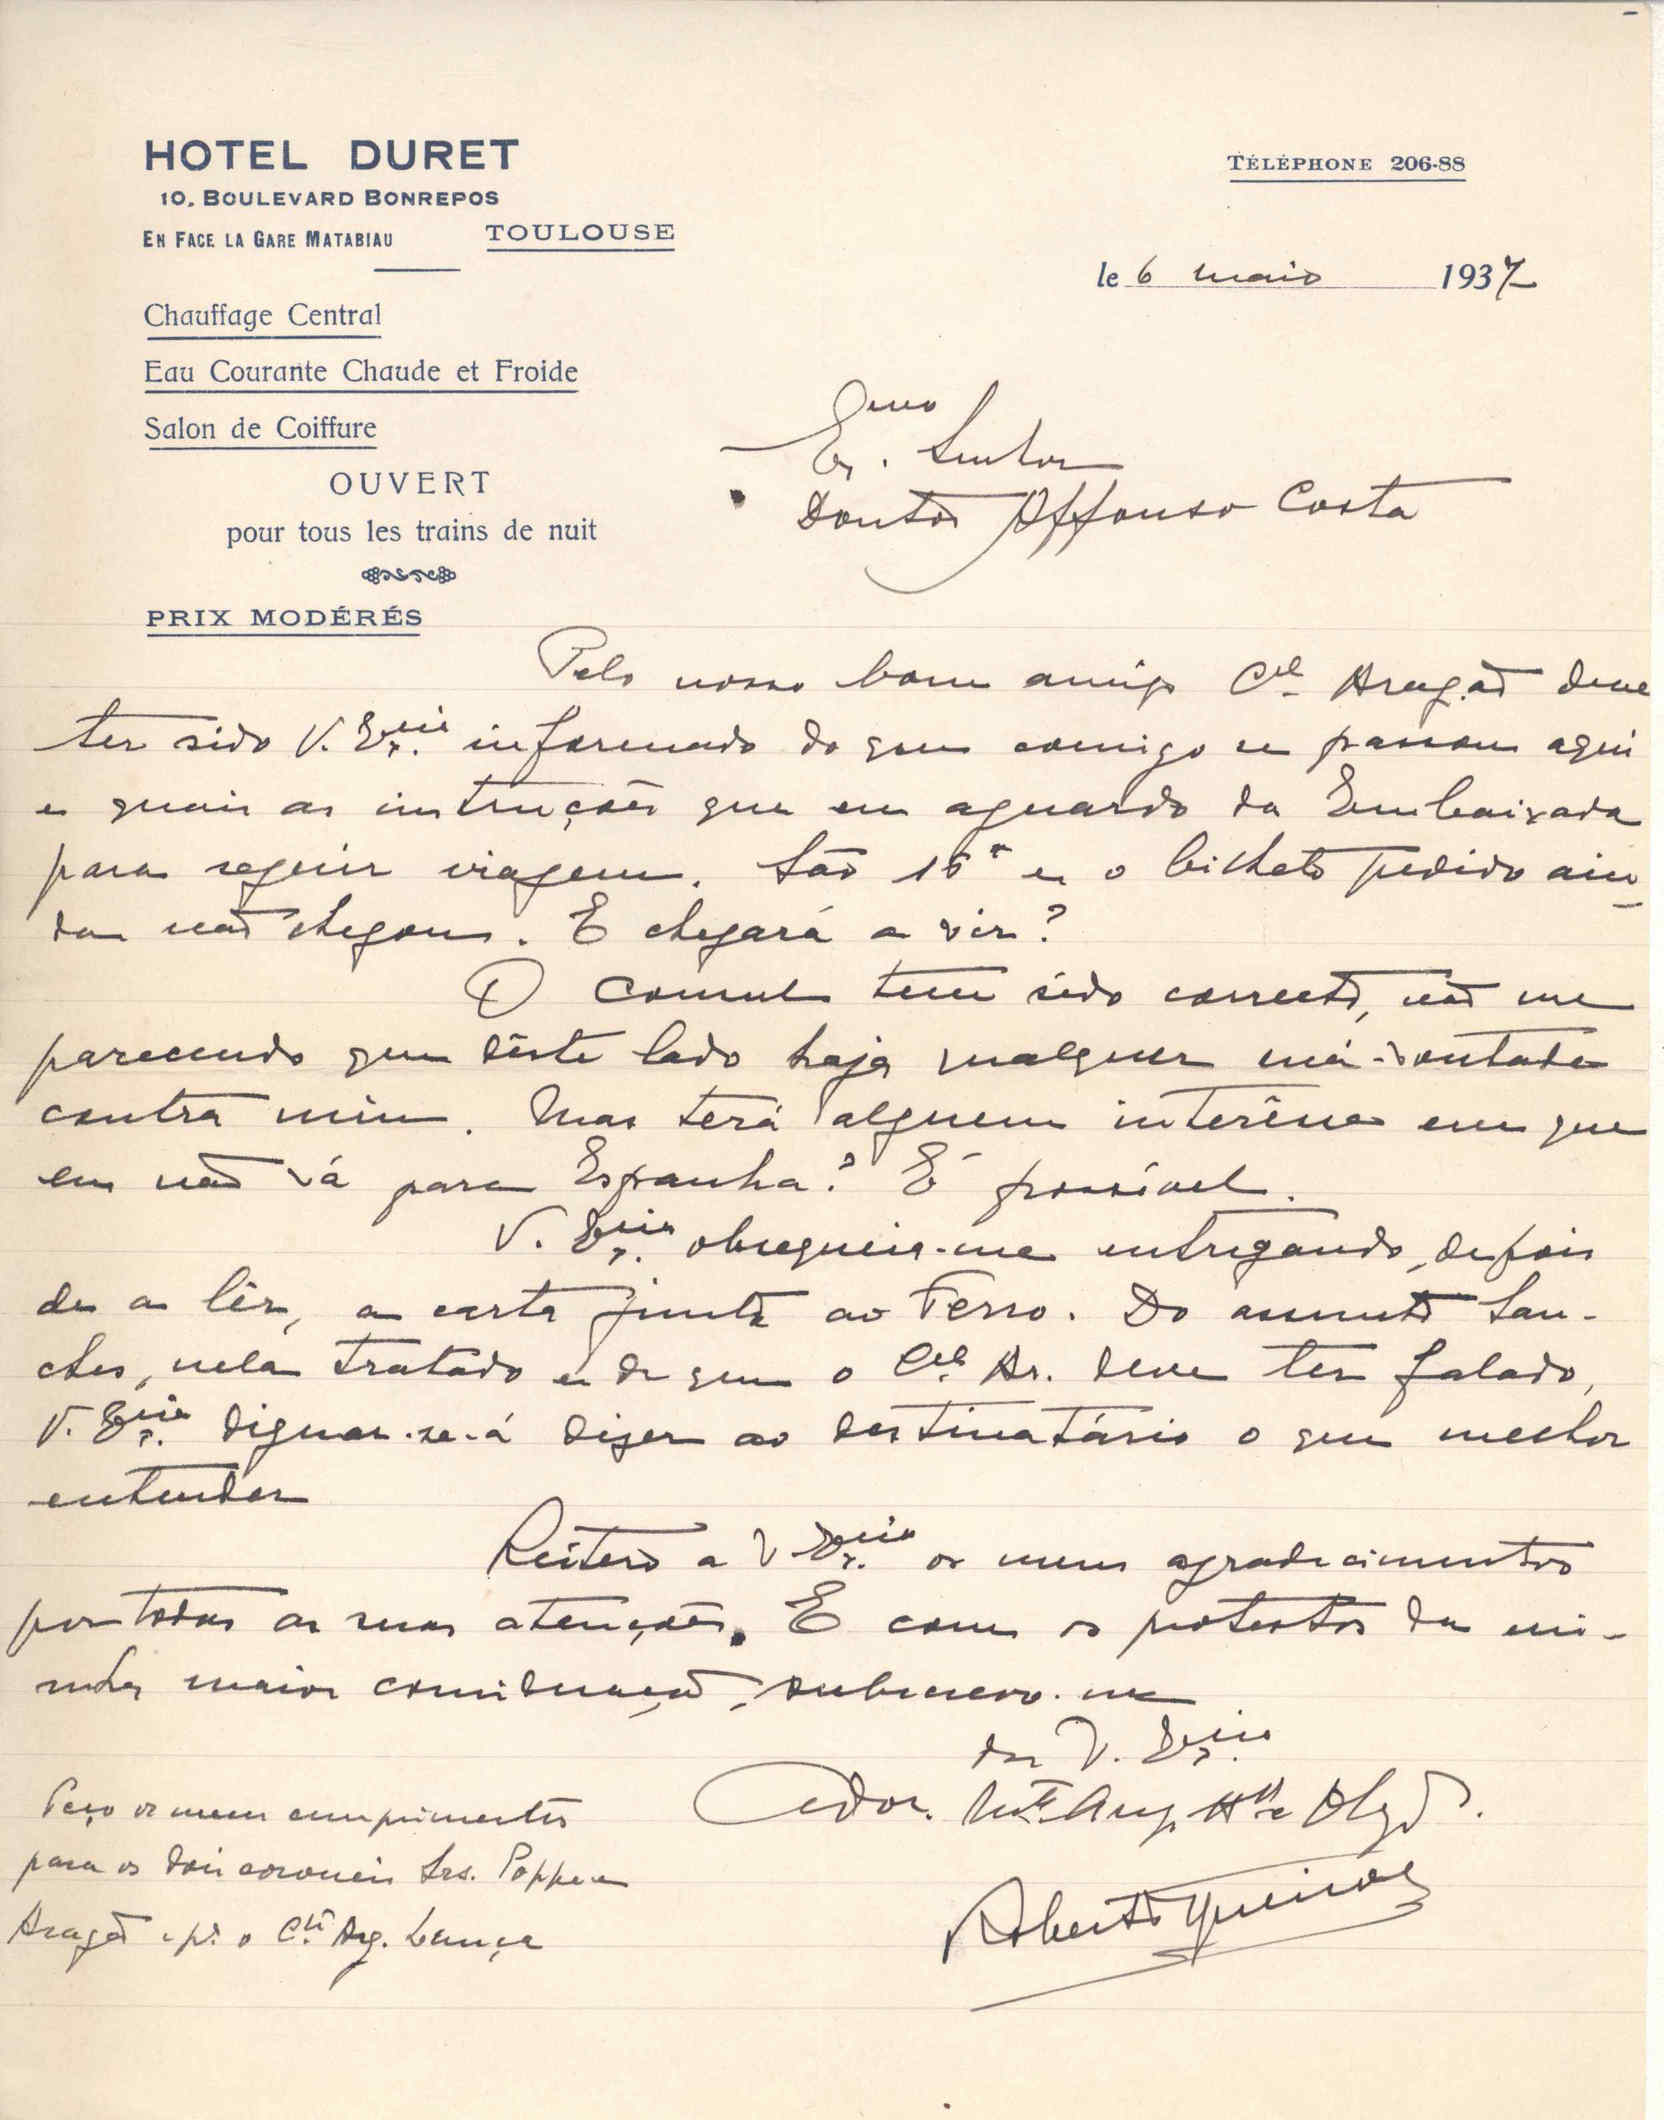 HOTEL DURET
10, BOULEVARD BONREPOS
EN FACE LA GARE MATABIAU TOULOUSE
TÉLÉPHONE 206-88
le 6 maio 1937
Chauffage Central
Eau Courante Chaude et Froide
Salon de Coiffure
OUVERT
pour tous les trains de nuit
PRIX MODÉRÉS
Exmo. Senhor
Doutor Affonso Costa
Pelo nosso bom amigo Cel Aragão deve
ter sido V. Excia. informado do que comigo se passou aqui
e quais as instruções que eu aguardo da Embaixada
para seguir viagem. São e o bilhete pedido ain
da não chegou. E chegará a vir?
O Consul tem sido correcto, não me
parecendo que dêste lado haja qualquer má-vontade
contra mim. Mas terá alguem interêsse em que
eu não vá para Espanha? É possível.
V. Excia. obsequeia-me entregando, depois
de a lêr, a carta junta ao Ferro. Do assunto San-
ches, nela tratado e de que o Cel. Ar. deve ter falado,
V. Excia. dignar-se-á dizer ao destinatário o que melhor
entender
Reitero a V Excia. os meus agradecimentos
por todas as suas atenções. E com os protestos da mi-
nha maior consideração, subscrevo-me
de V. Excia.
Ador. Mto
Roberto Queiroz
Peço os meus cumprimentos
para os dois coroneis Srs. Poppe e
Aragão e pa. o